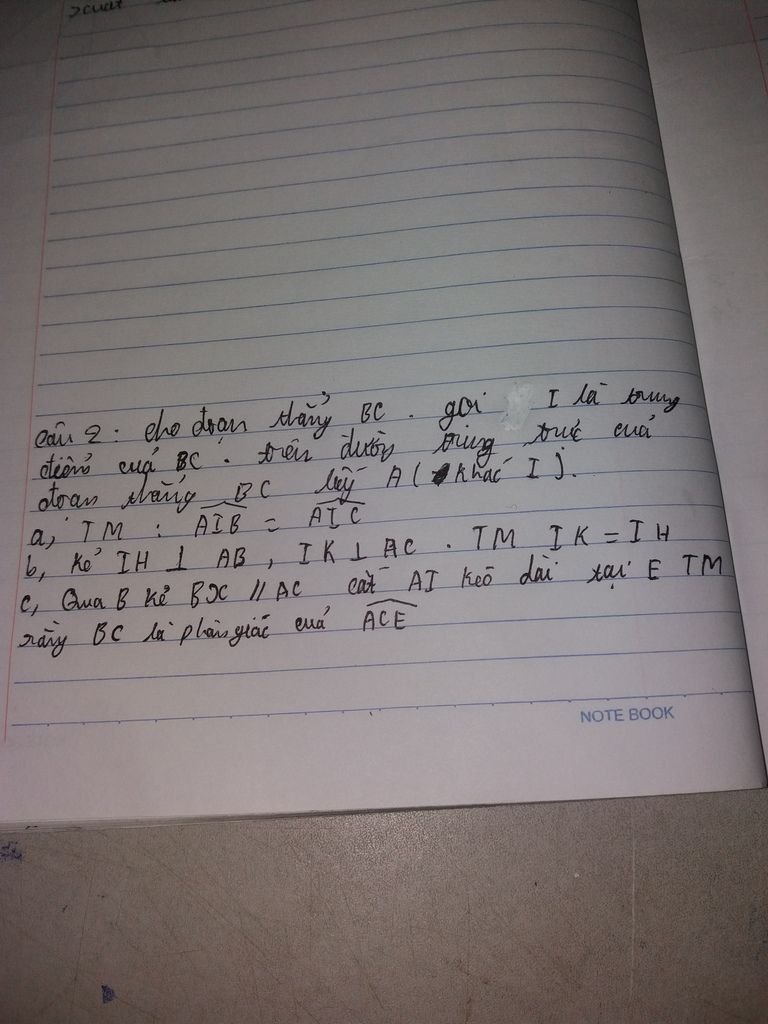 Câu 2: cho đoạn thẳng BC. gọi I là trung
điểm của BC. trên đường trung trực của
đoạn thẳng BC lấy A (khác I).
a, TM: AIB = AIC
b, Kẻ IH ⊥ AB, IK ⊥ AC. TM IK = IH
c, Qua B kẻ Bx // AC cắt AI kéo dài tại E TM
rằng BC là phân giác của ACE
NOTE BOOK